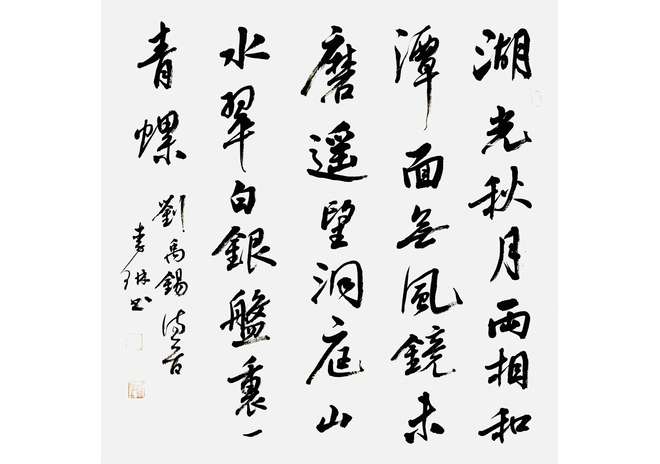 湖光秋月兩相和
潭面無風鏡未
磨遥望洞庭山
水翠白銀盤裏一
青螺
劉禹錫詩一首
书